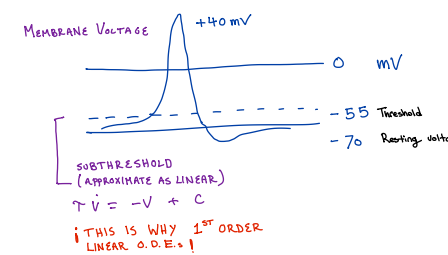 MEMBRANE VOLTAGE
+40 mV
0 mV
-55 Threshold
-70 Resting
SUBTHRESHOLD
(APPROXIMATE AS LINEAR)
τ V̇ = -V + C
¡ THIS IS WHY 1ST ORDER
LINEAR O.D.E.s !